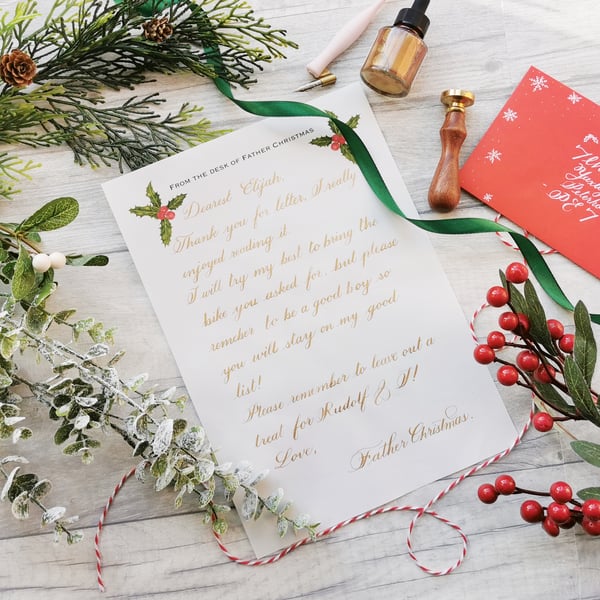 FROM THE DESK OF FATHER CHRISTMAS
Dearest Elijah,
Thank you for letter, I really
enjoyed reading it.
I will try my best to bring the
bike you asked for, but please
remeber to be a good boy so
you will stay on my good
list!
Please remember to leave out a
treat for Rudolf & I!
Love,
Father Christmas.